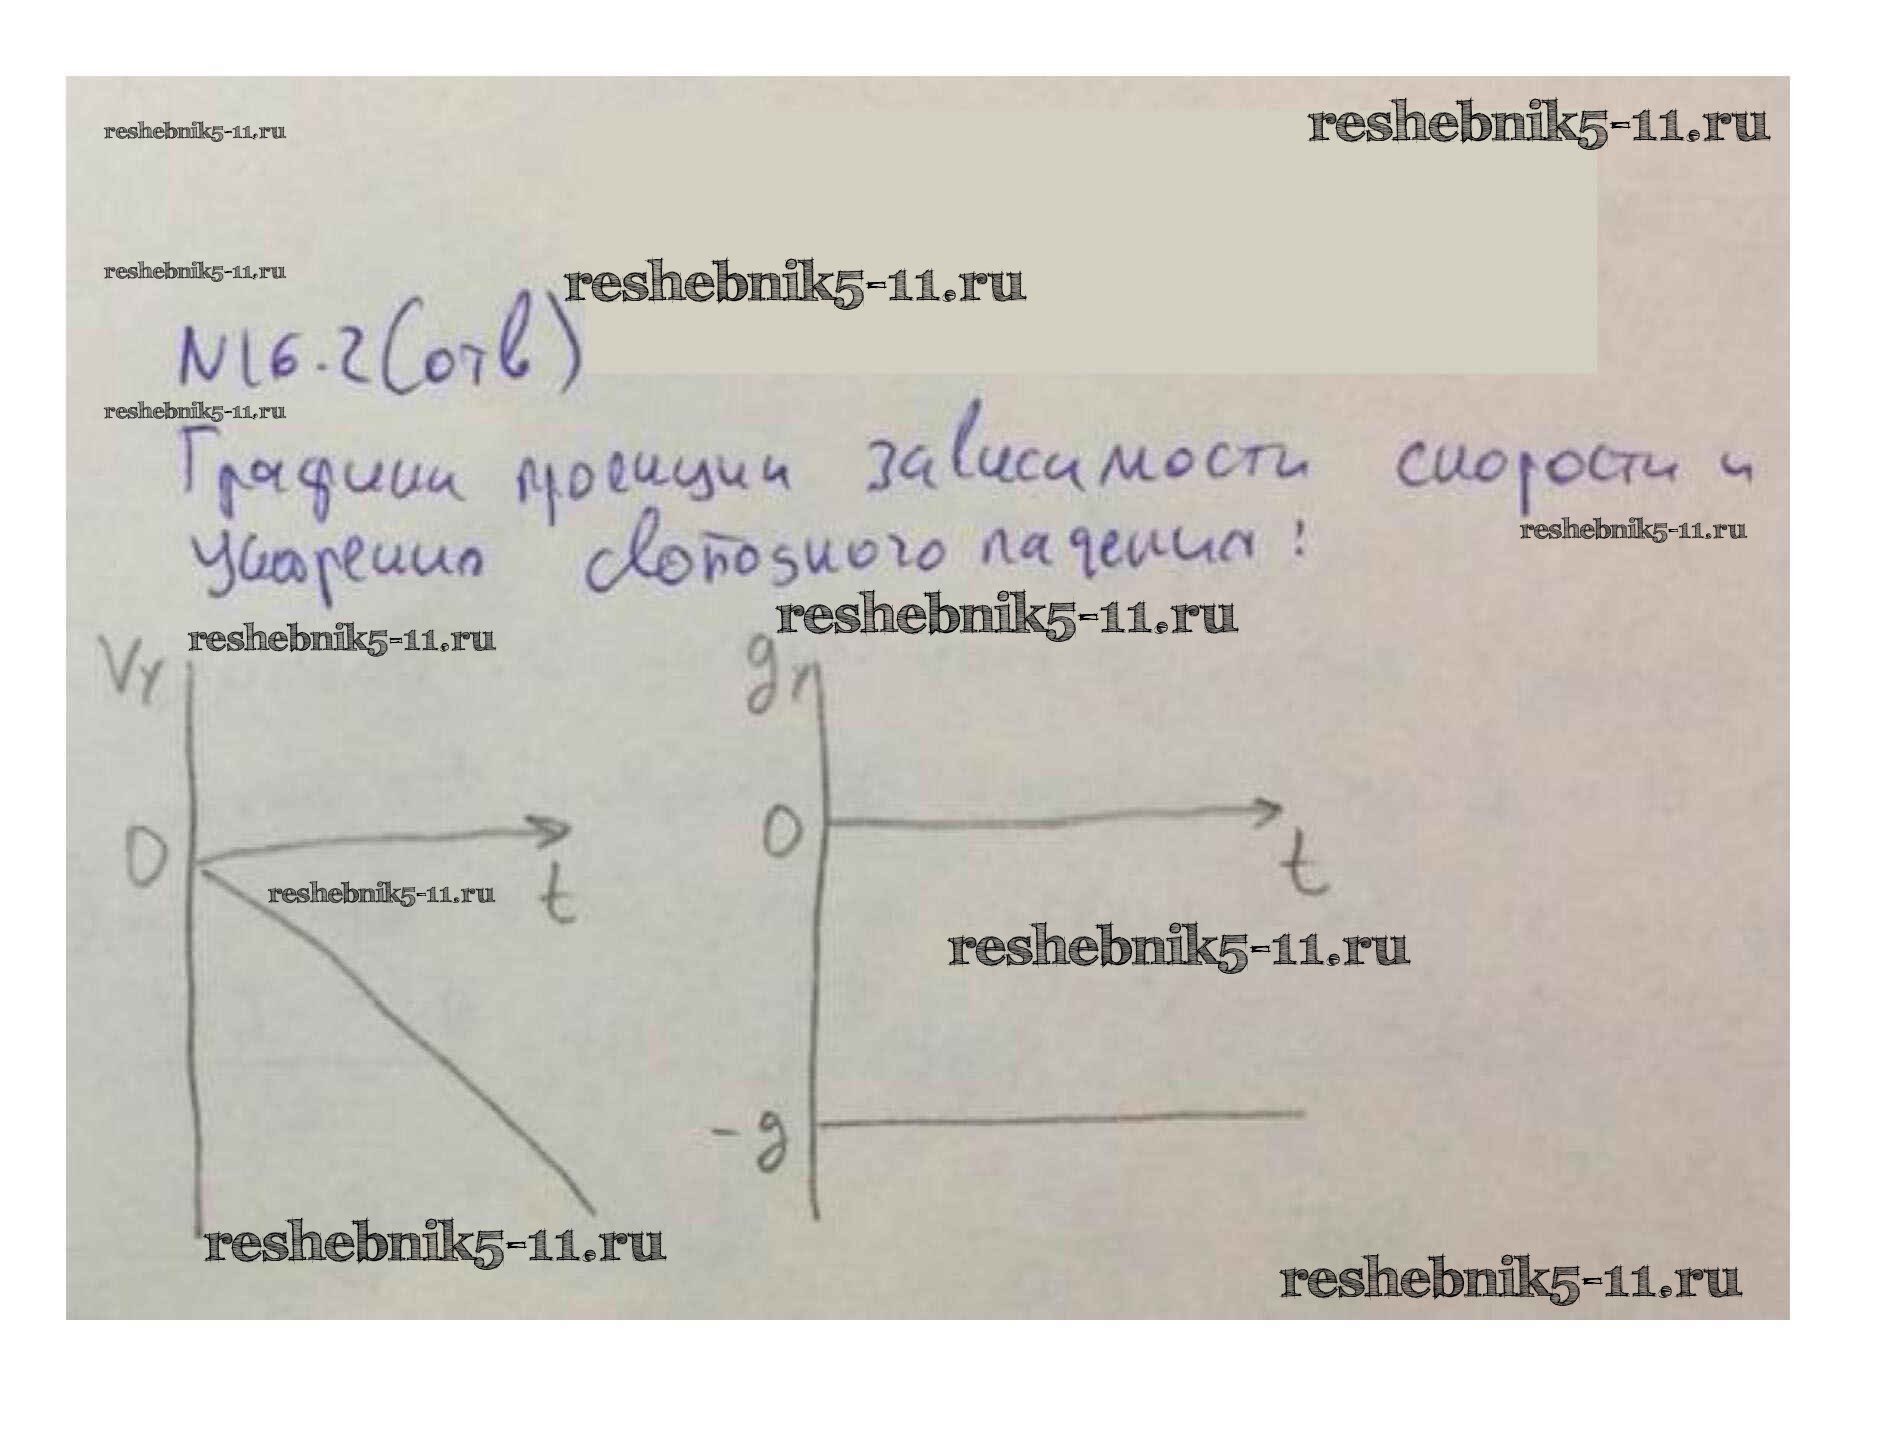 reshebnik5-11.ru
reshebnik5-11.ru
reshebnik5-11.ru
reshebnik5-11.ru
N16.2(отв)
reshebnik5-11.ru
Графики проекции зависимости скорости и
reshebnik5-11.ru
ускорения свободного падения:
reshebnik5-11.ru
reshebnik5-11.ru
Vy
gy
0
t
0
t
reshebnik5-11.ru
reshebnik5-11.ru
-g
reshebnik5-11.ru
reshebnik5-11.ru